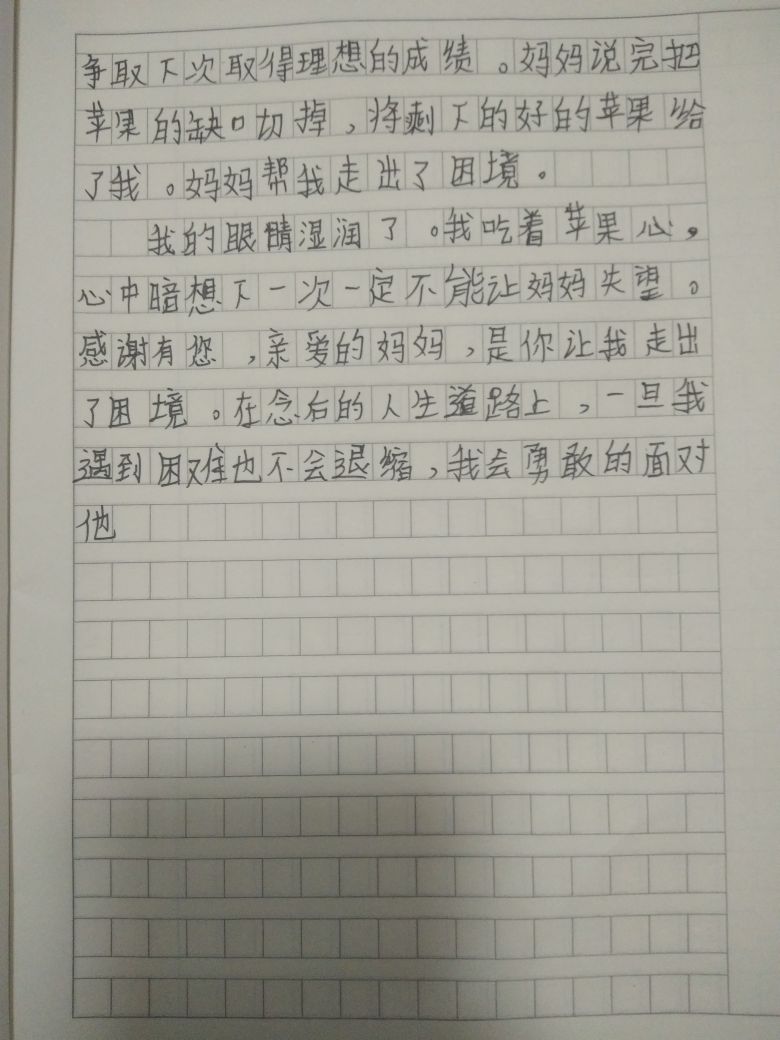 争取下次取得理想的成绩。妈妈说完把
苹果的缺口切掉，将剩下的好的苹果给
了我。妈妈帮我走出了困境。
我的眼睛湿润了。我吃着苹果心，
心中暗想下一次一定不能让妈妈失望。
感谢有您，亲爱的妈妈，是你让我走出
了困境。在念后的人生道路上，一旦我
遇到困难也不会退缩，我会勇敢的面对
他